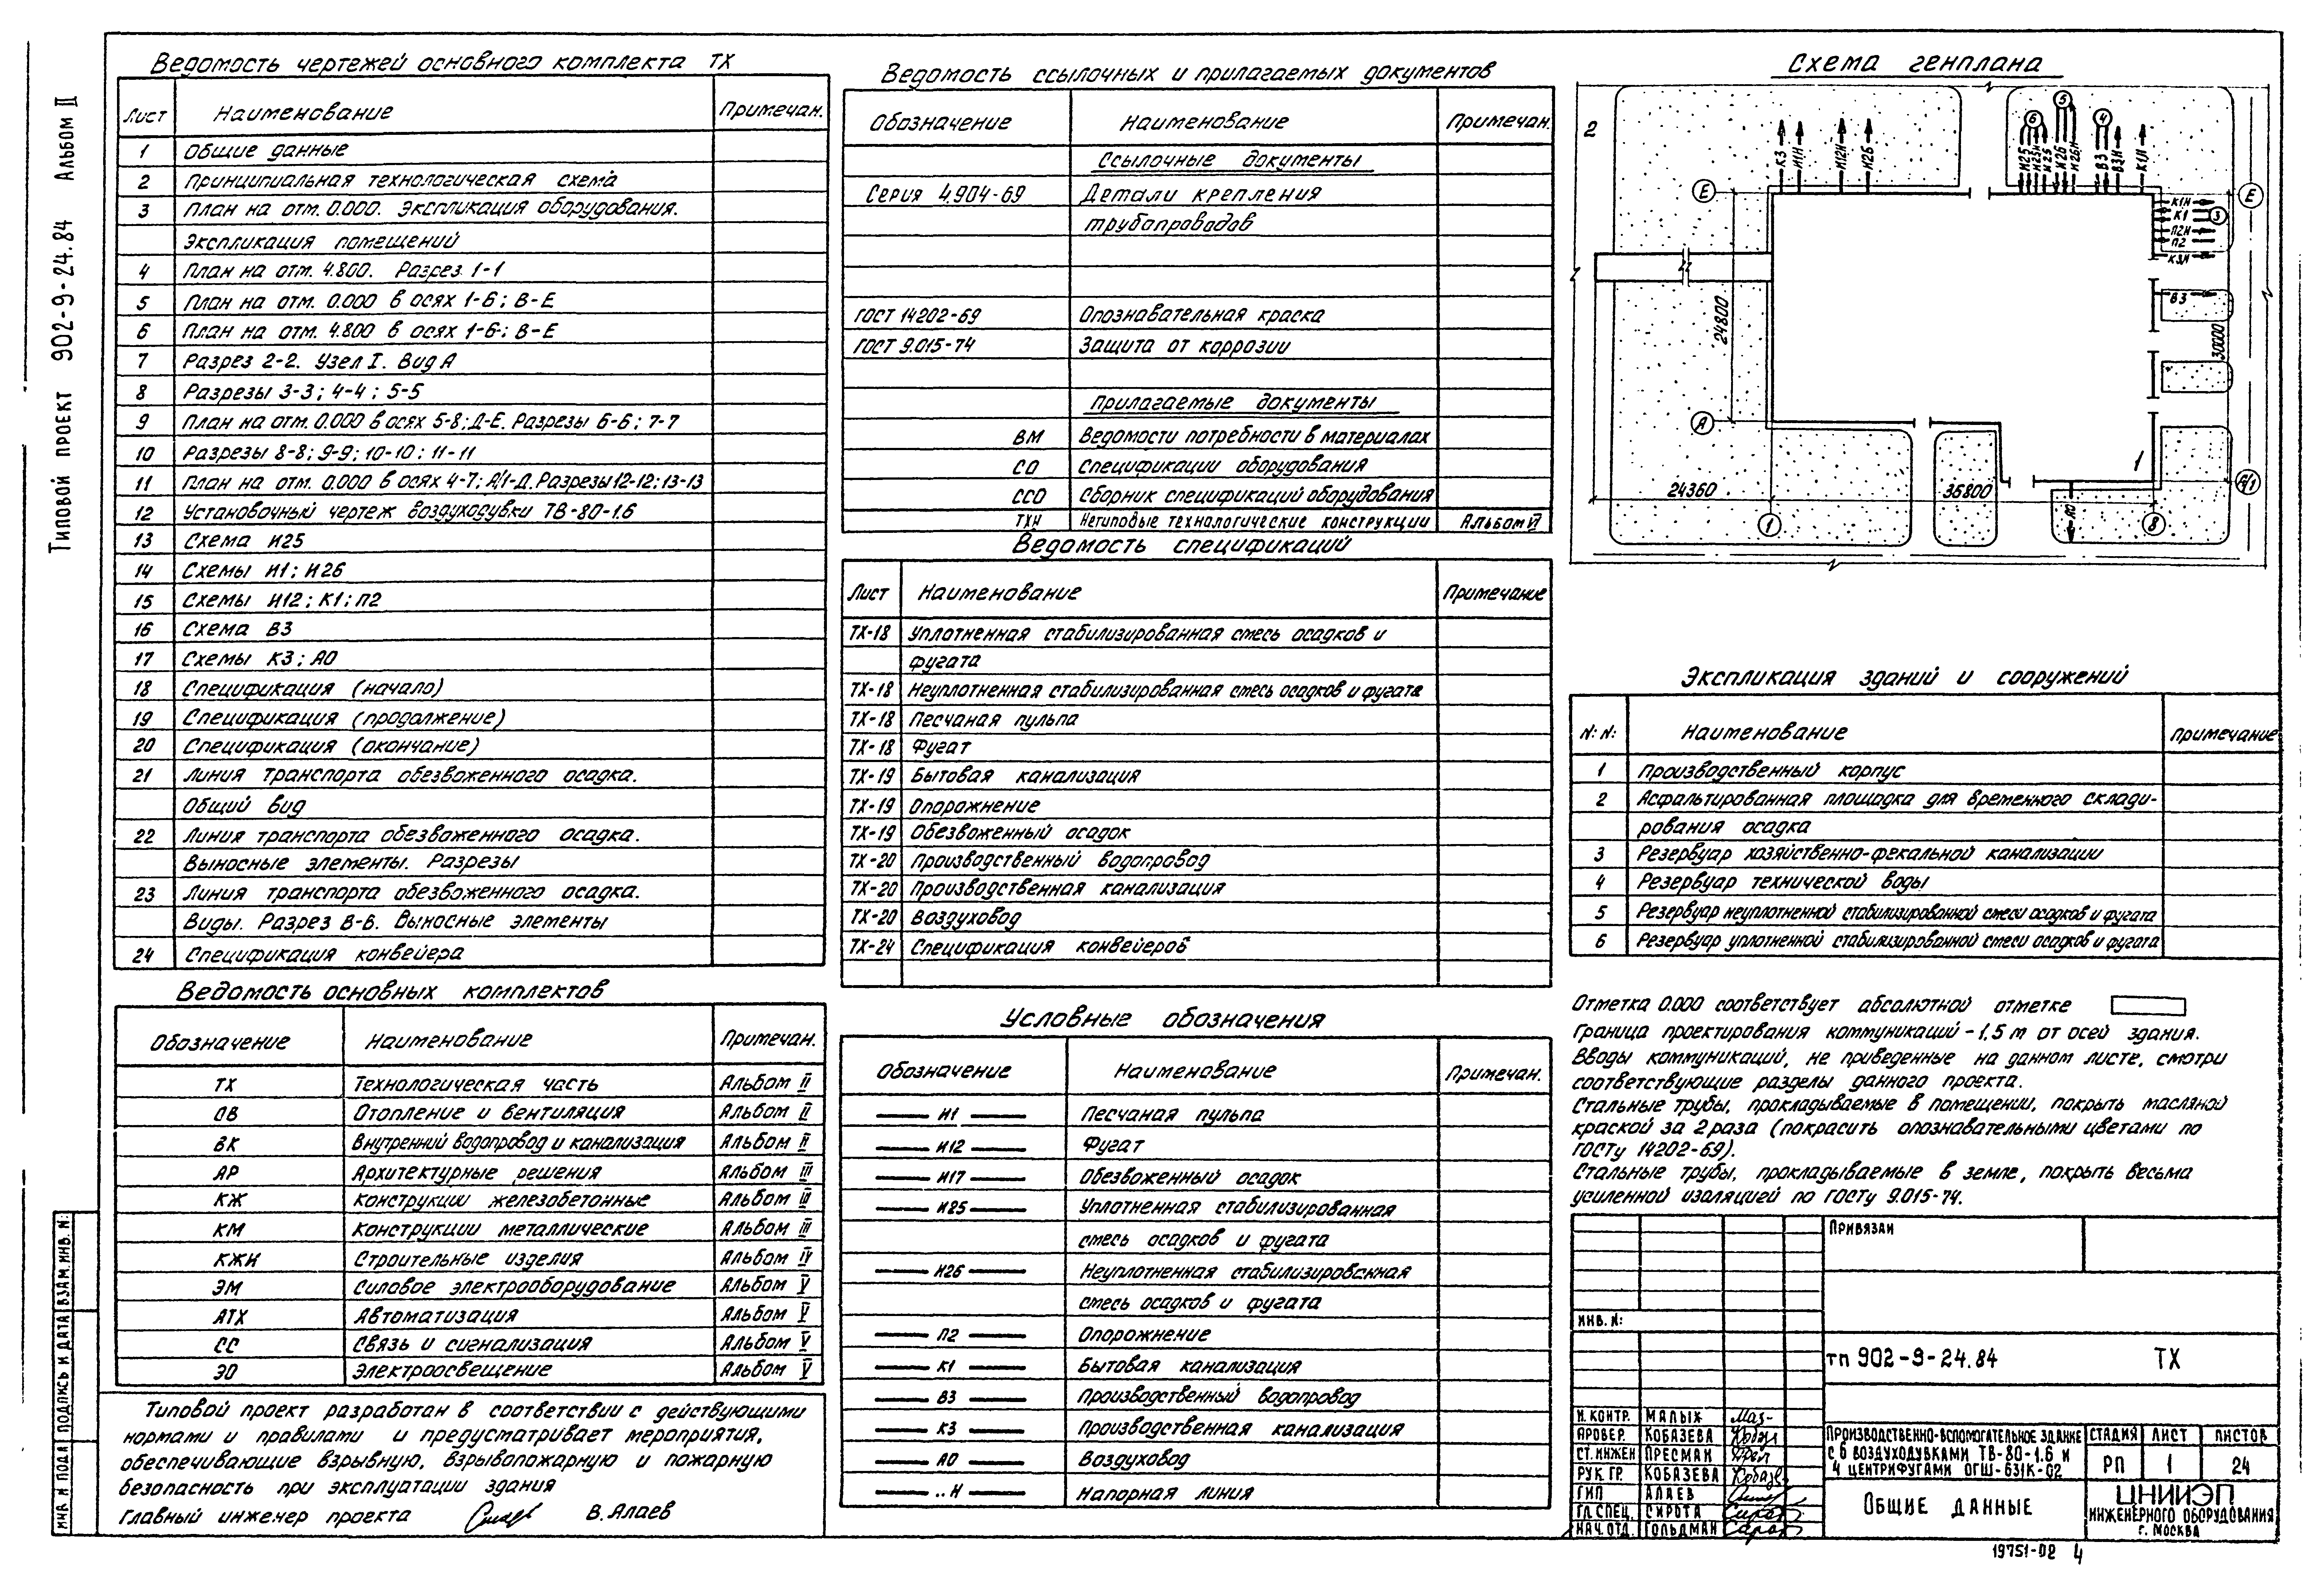 Типовой проект 902-9-24.84 Альбом II
Ведомость чертежей основного комплекта ТХ
Лист Наименование Примечан.
1 Общие данные
2 Принципиальная технологическая схема
3 План на отм. 0.000. Экспликация оборудования.
Экспликация помещений
4 План на отм. 4.800. Разрез 1-1
5 План на отм. 0.000 в осях 1-6; В-Е
6 План на отм. 4.800 в осях 1-6; В-Е
7 Разрез 2-2. Узел I. Вид А
8 Разрезы 3-3; 4-4; 5-5
9 План на отм. 0.000 в осях 5-8; Д-Е. Разрезы 6-6; 7-7
10 Разрезы 8-8; 9-9; 10-10; 11-11
11 План на отм. 0.000 в осях 4-7; А/1-Д. Разрезы 12-12; 13-13
12 Установочный чертеж воздуходувки ТВ-80-1.6
13 Схема И25
14 Схемы И1; И26
15 Схемы И12; К1; П2
16 Схема В3
17 Схемы К3; А0
18 Спецификация (начало)
19 Спецификация (продолжение)
20 Спецификация (окончание)
21 Линия транспорта обезвоженного осадка.
Общий вид
22 Линия транспорта обезвоженного осадка.
Выносные элементы. Разрезы
23 Линия транспорта обезвоженного осадка.
Виды. Разрез В-В. Выносные элементы
24 Спецификация конвейера
Ведомость основных комплектов
Обозначение Наименование Примечан.
ТХ Технологическая часть Альбом II
ОВ Отопление и вентиляция Альбом II
ВК Внутренний водопровод и канализация Альбом II
АР Архитектурные решения Альбом III
КЖ Конструкции железобетонные Альбом III
КМ Конструкции металлические Альбом III
КЖИ Строительные изделия Альбом IV
ЭМ Силовое электрооборудование Альбом V
АТХ Автоматизация Альбом V
СС Связь и сигнализация Альбом V
ЭО Электроосвещение Альбом V
Типовой проект разработан в соответствии с действующими
нормами и правилами и предусматривает мероприятия,
обеспечивающие взрывную, взрывопожарную и пожарную
безопасность при эксплуатации здания
Главный инженер проекта В. Алаев
Ведомость ссылочных и прилагаемых документов
Обозначение Наименование Примечан.
Ссылочные документы
Серия 4.904-69 Детали крепления
трубопроводов
ГОСТ 14202-69 Опознавательная краска
ГОСТ 9.015-74 Защита от коррозии
Прилагаемые документы
ВМ Ведомости потребности в материалах
СО Спецификации оборудования
ССО Сборник спецификаций оборудования
ТХН Нетиповые технологические конструкции Альбом VI
Ведомость спецификаций
Лист Наименование Примечание
ТХ-18 Уплотненная стабилизированная смесь осадков и
фугата
ТХ-18 Неуплотненная стабилизированная смесь осадков и фугата
ТХ-18 Песчаная пульпа
ТХ-18 Фугат
ТХ-19 Бытовая канализация
ТХ-19 Опорожнение
ТХ-19 Обезвоженный осадок
ТХ-20 Производственный водопровод
ТХ-20 Производственная канализация
ТХ-20 Воздуховод
ТХ-24 Спецификация конвейеров
Условные обозначения
Обозначение Наименование Примечан.
И1 Песчаная пульпа
И12 Фугат
И17 Обезвоженный осадок
И25 Уплотненная стабилизированная
смесь осадков и фугата
И26 Неуплотненная стабилизированная
смесь осадков и фугата
П2 Опорожнение
К1 Бытовая канализация
В3 Производственный водопровод
К3 Производственная канализация
А0 Воздуховод
..Н Напорная линия
Схема генплана
2
К3 И1Н И12Н И26
6 5 4
И25 И25Н И25 И26 И26Н В3 В3Н К1Н
Е Е
К1Н
К1 3
П2Н
П2
К3Н
В3
24800
30000
А
1
А/1
24360 36800
А0
1 8
Экспликация зданий и сооружений
N: N: Наименование Примечание
1 Производственный корпус
2 Асфальтированная площадка для временного склади-
рования осадка
3 Резервуар хозяйственно-фекальной канализации
4 Резервуар технической воды
5 Резервуар неуплотненной стабилизированной смеси осадков и фугата
6 Резервуар уплотненной стабилизированной смеси осадков и фугата
Отметка 0.000 соответствует абсолютной отметке
Граница проектирования коммуникаций - 1,5 м от осей здания.
Вводы коммуникаций, не приведенные на данном листе, смотри
соответствующие разделы данного проекта.
Стальные трубы, прокладываемые в помещении, покрыть масляной
краской за 2 раза (покрасить опознавательными цветами по
ГОСТу 14202-69).
Стальные трубы, прокладываемые в земле, покрыть весьма
усиленной изоляцией по ГОСТу 9.015-74.
Привязан
Инв. N:
тп 902-9-24.84 ТХ
Н. контр. Малых
Провер. Кобазева
Ст. инжен Пресман
Рук. гр. Кобазева
ГИП Алаев
Гл. спец. Сирота
Нач. отд. Гольдман
Производственно-вспомогательное здание
с 6 воздуходувками ТВ-80-1.6 и
4 центрифугами ОГШ-631К-02
Стадия Лист Листов
РП 1 24
Общие данные
ЦНИИЭП
инженерного оборудования
г. Москва
19751-02 4
Инв. N подл Подпись и дата Взам. инв. N: